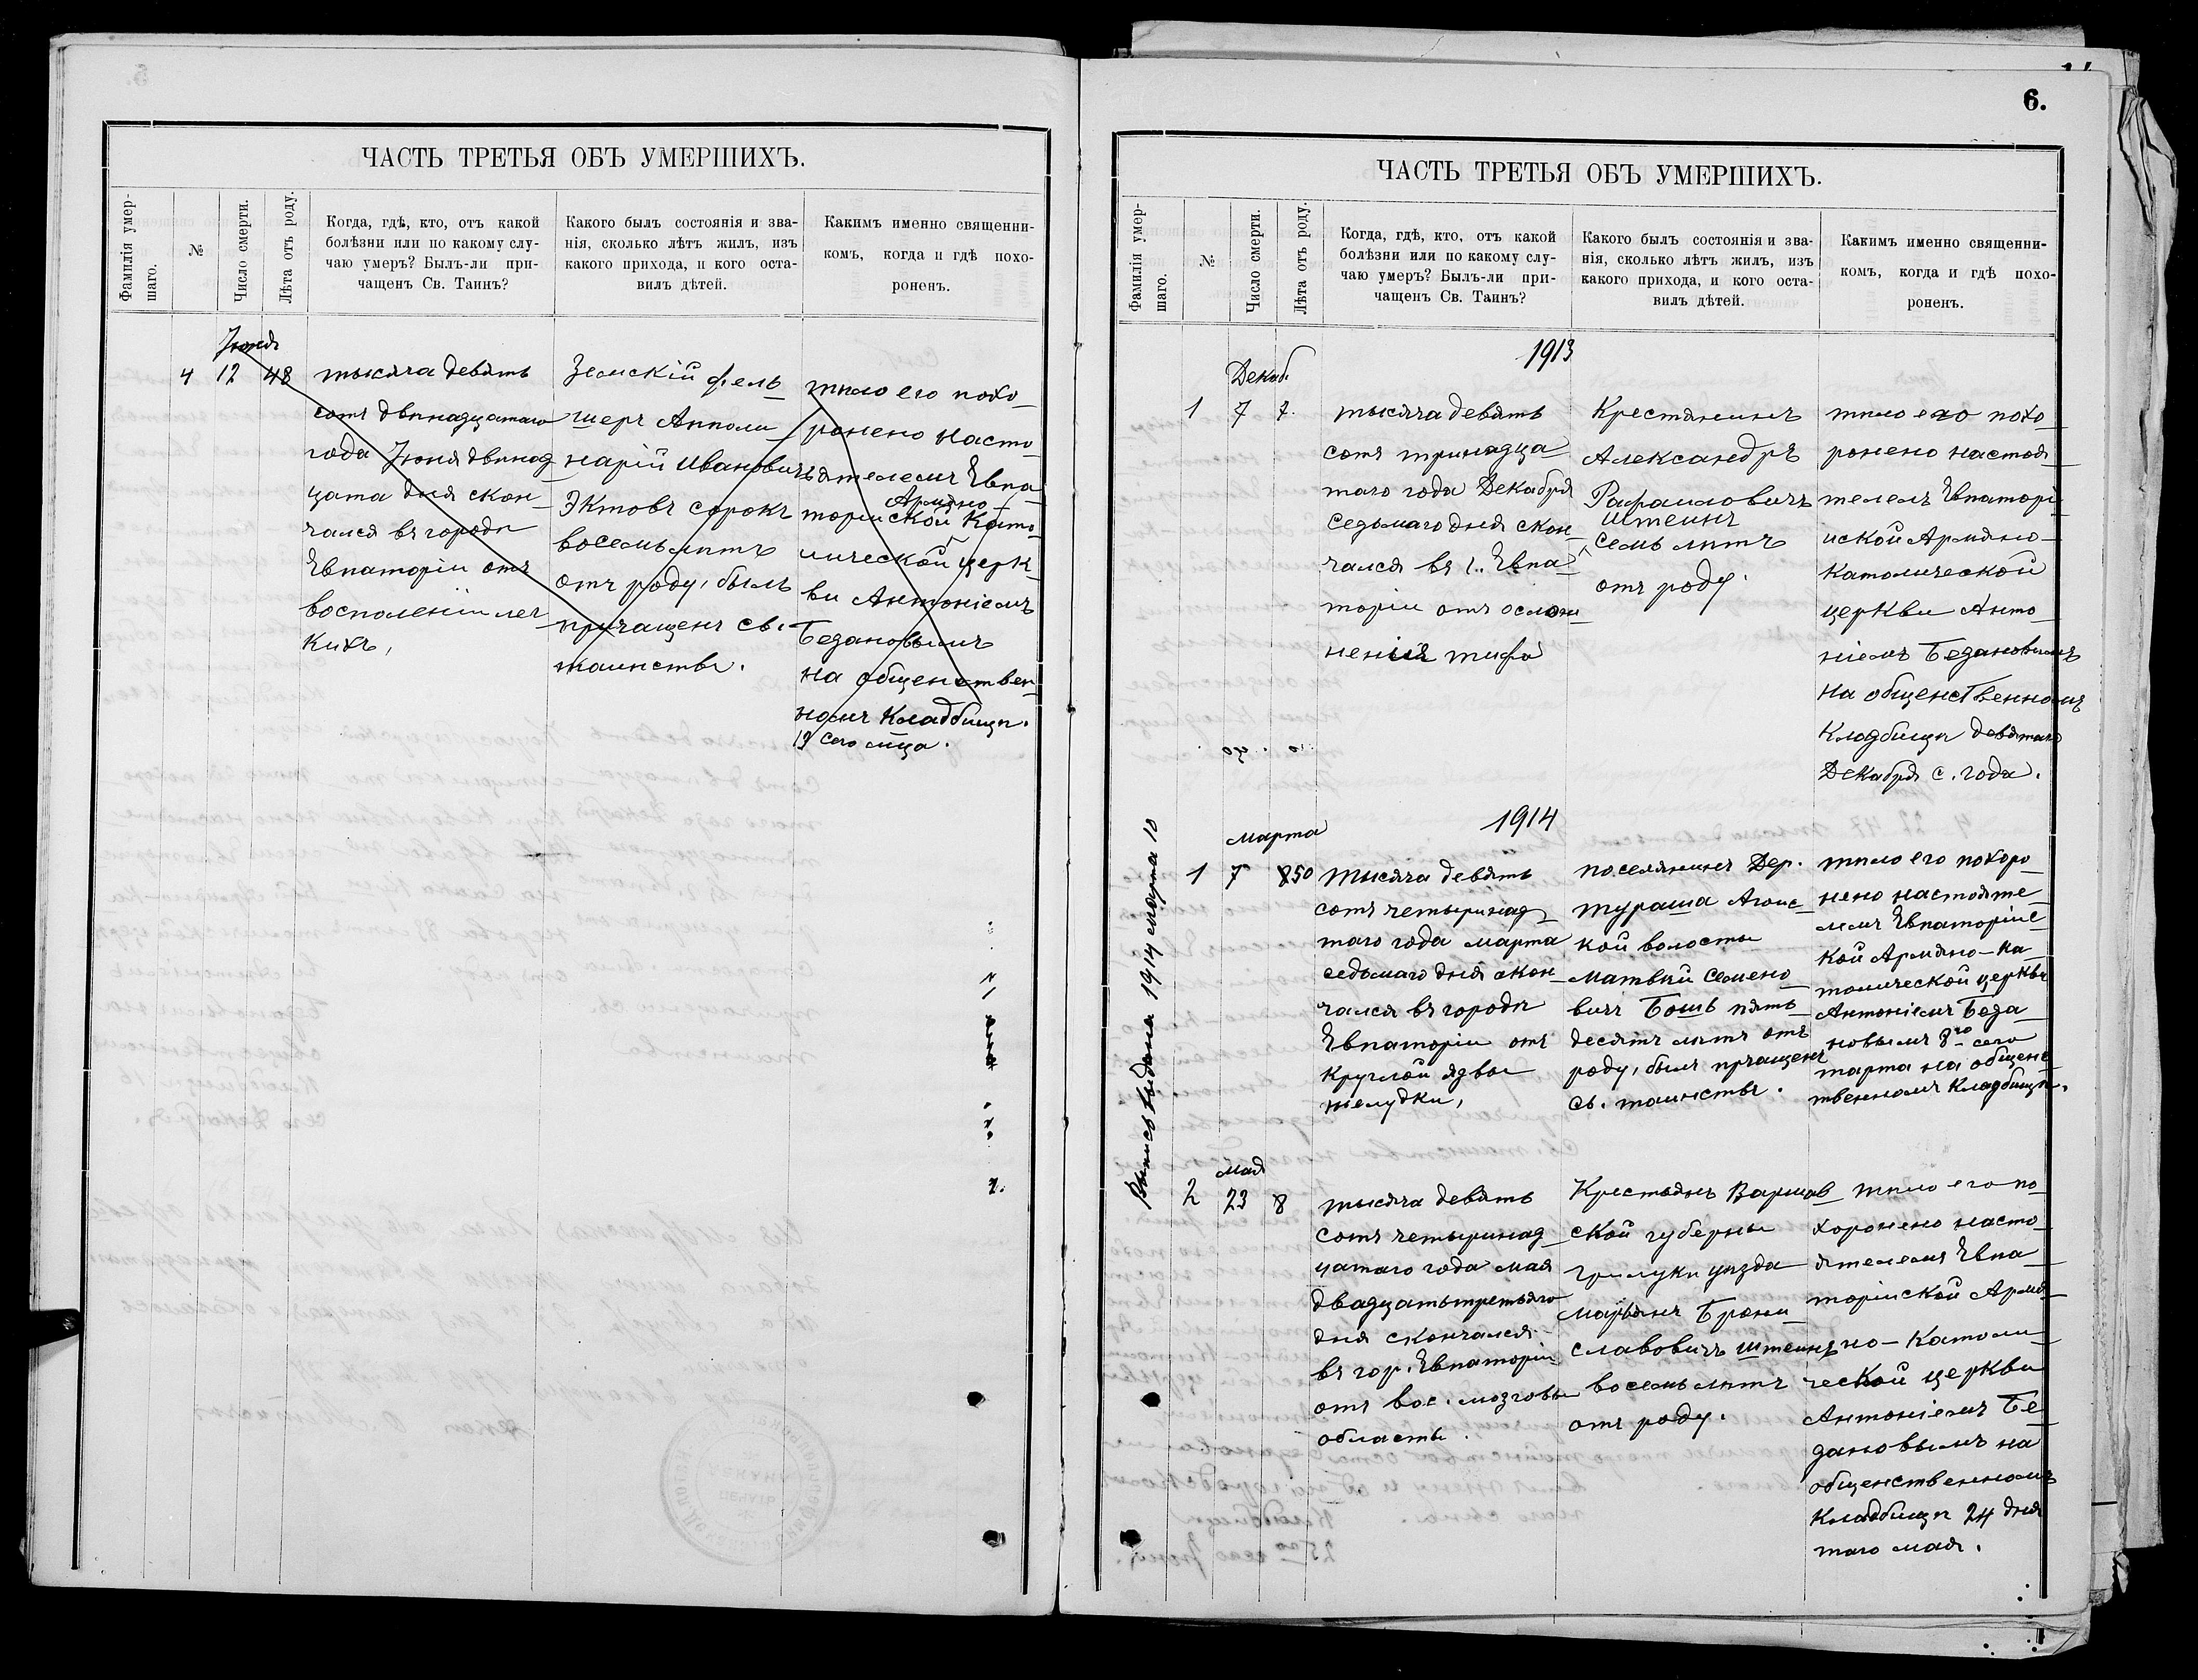 ЧАСТЬ ТРЕТЬЯ ОБЪ УМЕРШИХЪ.
Фамилія умер-
шаго.
№
Число смерти.
Лѣта отъ роду.
Когда, гдѣ, кто, отъ какой
болѣзни или по какому слу-
чаю умеръ? Былъ-ли при-
чащенъ Св. Таинъ?
Какого былъ состоянія и зва-
нія, сколько лѣтъ жилъ, изъ
какого прихода, и кого оста-
вилъ дѣтей.
Какимъ именно священни-
комъ, когда и гдѣ похо-
роненъ.
Іюня
4 12 48
тысяча девять
сотъ двѣнадцатаго
года Іюня двѣнад
цата дня скон-
чался въ городѣ
Евпаторіи отъ
восполеніи лег
кихъ,
Земскій фель
шеръ Апполи
нарій Ивановичъ
Эктовъ сорокъ
восемь лѣтъ
отъ роду, былъ
причащенъ св.
таинствъ.
тѣло его похо
ронено насто
ятелемъ Евпа
Армяно-
торійской Като
лической церк
ви Антоніемъ
Бедановымъ
на общенствен
номъ Кладбищѣ.
13 сего мѣца.
6.
ЧАСТЬ ТРЕТЬЯ ОБЪ УМЕРШИХЪ.
Фамилія умер-
шаго.
№
Число смерти.
Лѣта отъ роду.
Когда, гдѣ, кто, отъ какой
болѣзни или по какому слу-
чаю умеръ? Былъ-ли при-
чащенъ Св. Таинъ?
Какого былъ состоянія и зва-
нія, сколько лѣтъ жилъ, изъ
какого прихода, и кого оста-
вилъ дѣтей.
Какимъ именно священни-
комъ, когда и гдѣ похо-
роненъ.
1913
Декаб.
1 7 7.
тысяча девять
сотъ тринадца
таго года Декабря
седьмаго дня скон
чался въ г. Евпа
торіи отъ ослож
ненія тифа
Крестянинъ
Александръ
Рафаиловичъ
Штеинъ
семь лѣтъ
отъ роду.
тѣло его похо
ронено настоя
телемъ Евпаторі
йской Армяно-
Католической
церкви Анто
ніемъ Бедановымъ
на общенственномъ
Кладбищѣ девятаго
Декабря с. года.
1914
Выпись выдана 1914 марта 10
марта
1 7 50
тысяча девять
сотъ четырнад
таго года марта
седьмаго дня скон
чался въ городѣ
Евпаторіи отъ
круглой язвы
желудки,
поселянинъ Дер.
тураша Агоис
кой волосты
Матвѣй Семено
вичъ Бошъ пять
десятъ лѣтъ отъ
роду, былъ пращенъ
св. таинствъ.
тѣло его похоро
нено настояте
лемъ Евпаторійс
кой Армяно-ка
толической церкви
Антоніемъ Беда
новымъ 8го сего
марта на общенс
твенномъ Кладбищѣ.
мая
2 23 8
тысяча девять
сотъ четырнад
цатаго года мая
двадцатьтретьяго
дня скончался
въ гор. Евпаторіи
отъ вос. мозговы
область.
Крестьянъ Варшав
ской губерны
Грилуки уѣзда
Марьянъ Брони
славовичъ Штеинъ
восемь лѣтъ
отъ роду.
тѣло его по
хоронено насто
ятелемъ Евпа
торійской Армя
но-Католи
ческой церкви
Антоніемъ Бе
дановымъ на
общенственномъ
Кладбищѣ 24 дня
того мая.